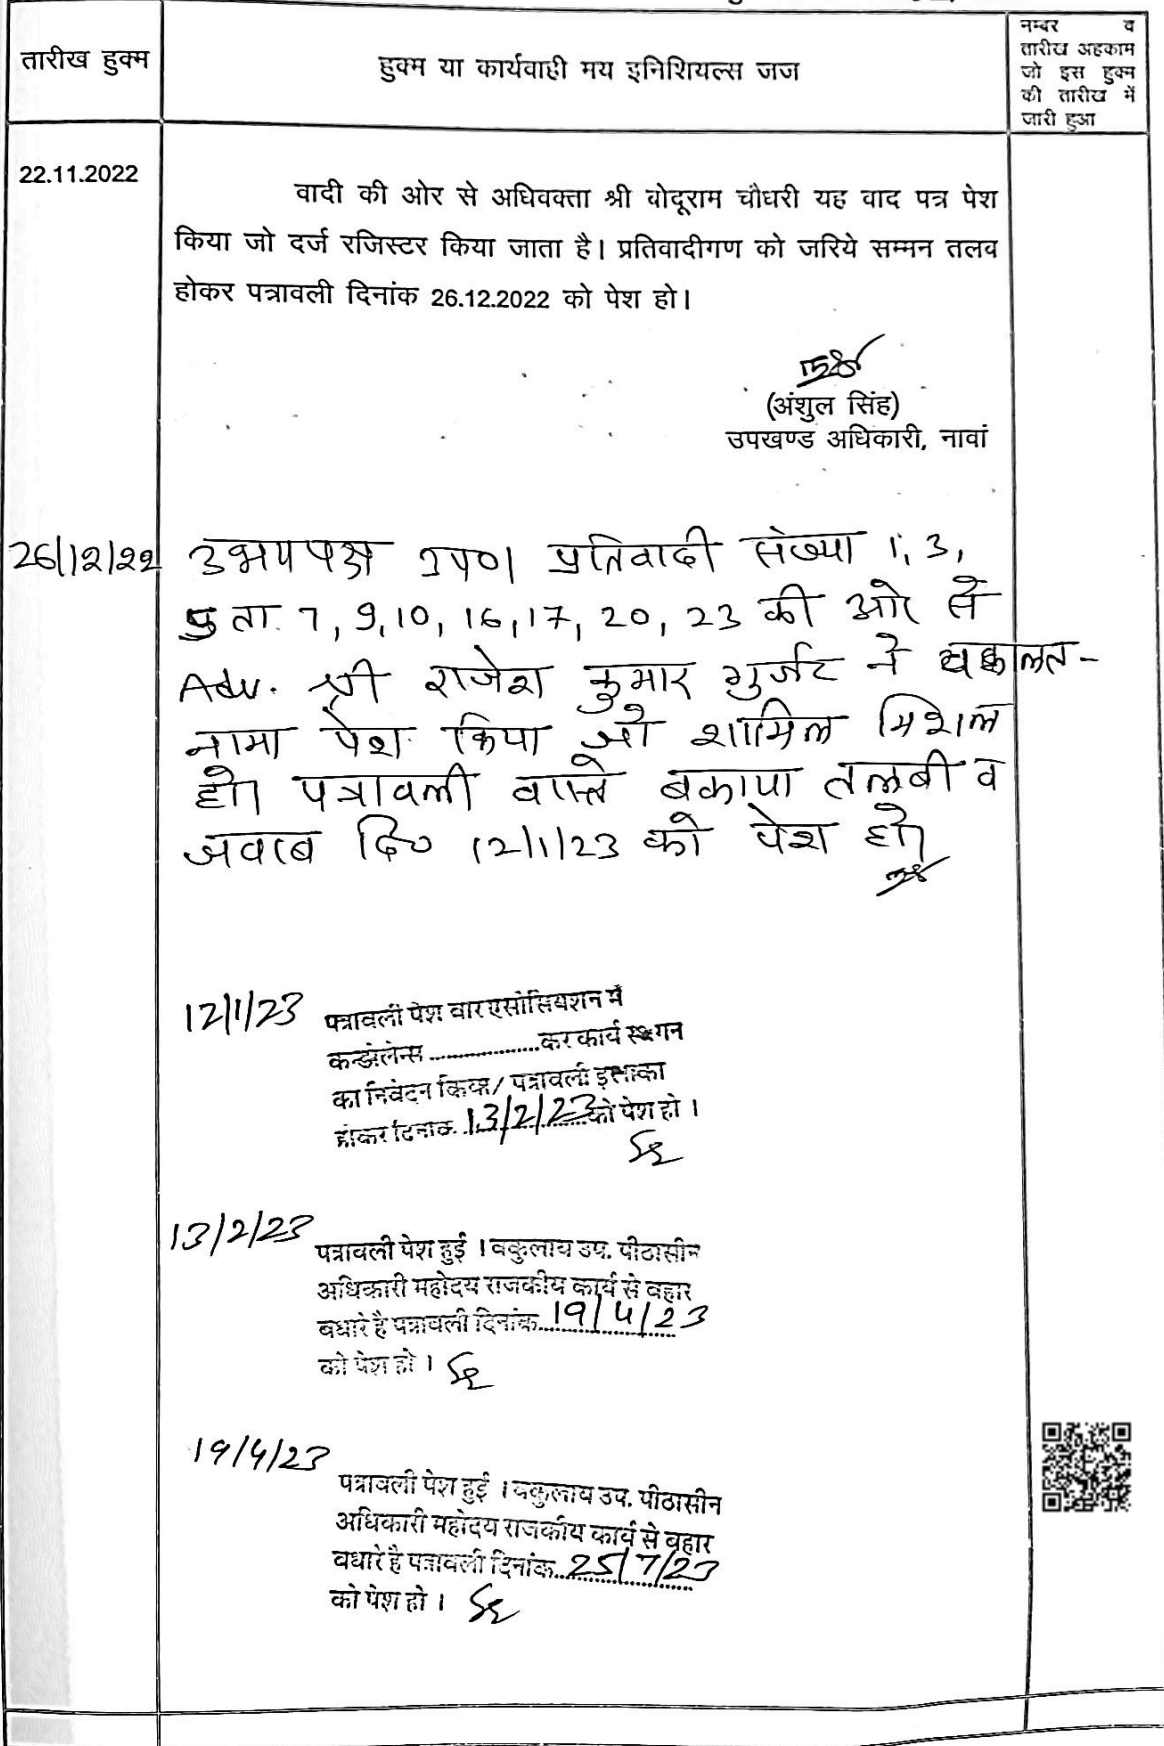 तारीख हुक्म
हुक्म या कार्यवाही मय इनिशियल्स जज
नम्बर व
तारीख अहकाम
जो इस हुक्म
की तारीख में
जारी हुआ
22.11.2022
वादी की ओर से अधिवक्ता श्री बोदूराम चौधरी यह वाद पत्र पेश
किया जो दर्ज रजिस्टर किया जाता है। प्रतिवादीगण को जरिये सम्मन तलब
होकर पत्रावली दिनांक 26.12.2022 को पेश हो।
(अंशुल सिंह)
उपखण्ड अधिकारी, नावां
26/12/22 उभयपक्ष उप0। प्रतिवादी संख्या 1, 3,
ता. 7, 9, 10, 16, 17, 20, 23 की ओर से
Adv. श्री राजेश कुमार गुर्जर ने वकालत-
नामा पेश किया जो शामिल मिशल
हो। पत्रावली वास्ते बकाया तलबी व
जवाब दि0 12/1/23 को पेश हो।
12/1/23 पत्रावली पेश बार एसोसियशन में
कन्डोलेन्स ....................कर कार्य स्थगन
का निवेदन किया/ पत्रावली इत्तलाका
होकर दिनांक. 13/2/23 को पेश हो ।
13/2/23
पत्रावली पेश हुई । वकुलाय उप. पीठासीन
अधिकारी महोदय राजकीय कार्य से बहार
पधारे है पत्रावली दिनांक 19/4/23
को पेश हो ।
19/4/23
पत्रावली पेश हुई । वकुलाय उप. पीठासीन
अधिकारी महोदय राजकीय कार्य से बहार
पधारे है पत्रावली दिनांक 25/7/23
को पेश हो ।